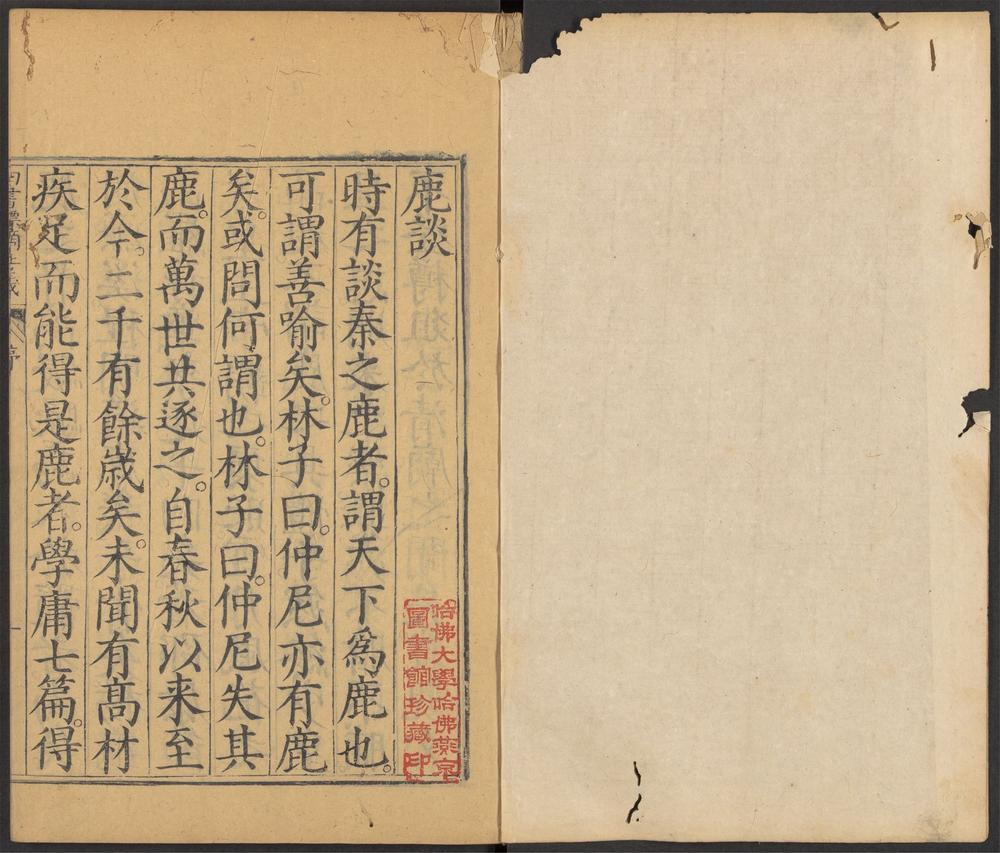 鹿談
時有談秦之鹿者。謂天下為鹿也。
可謂善喻矣。林子曰。仲尼亦有鹿
矣。或問何謂也。林子曰。仲尼失其
鹿。而萬世共逐之。自春秋以来至
於今。二千有餘歳矣。未聞有髙材
疾足而能得是鹿者。學庸七篇。得
哈佛大學哈佛燕京
圖書館珍藏印
四書標摘正義
序
一